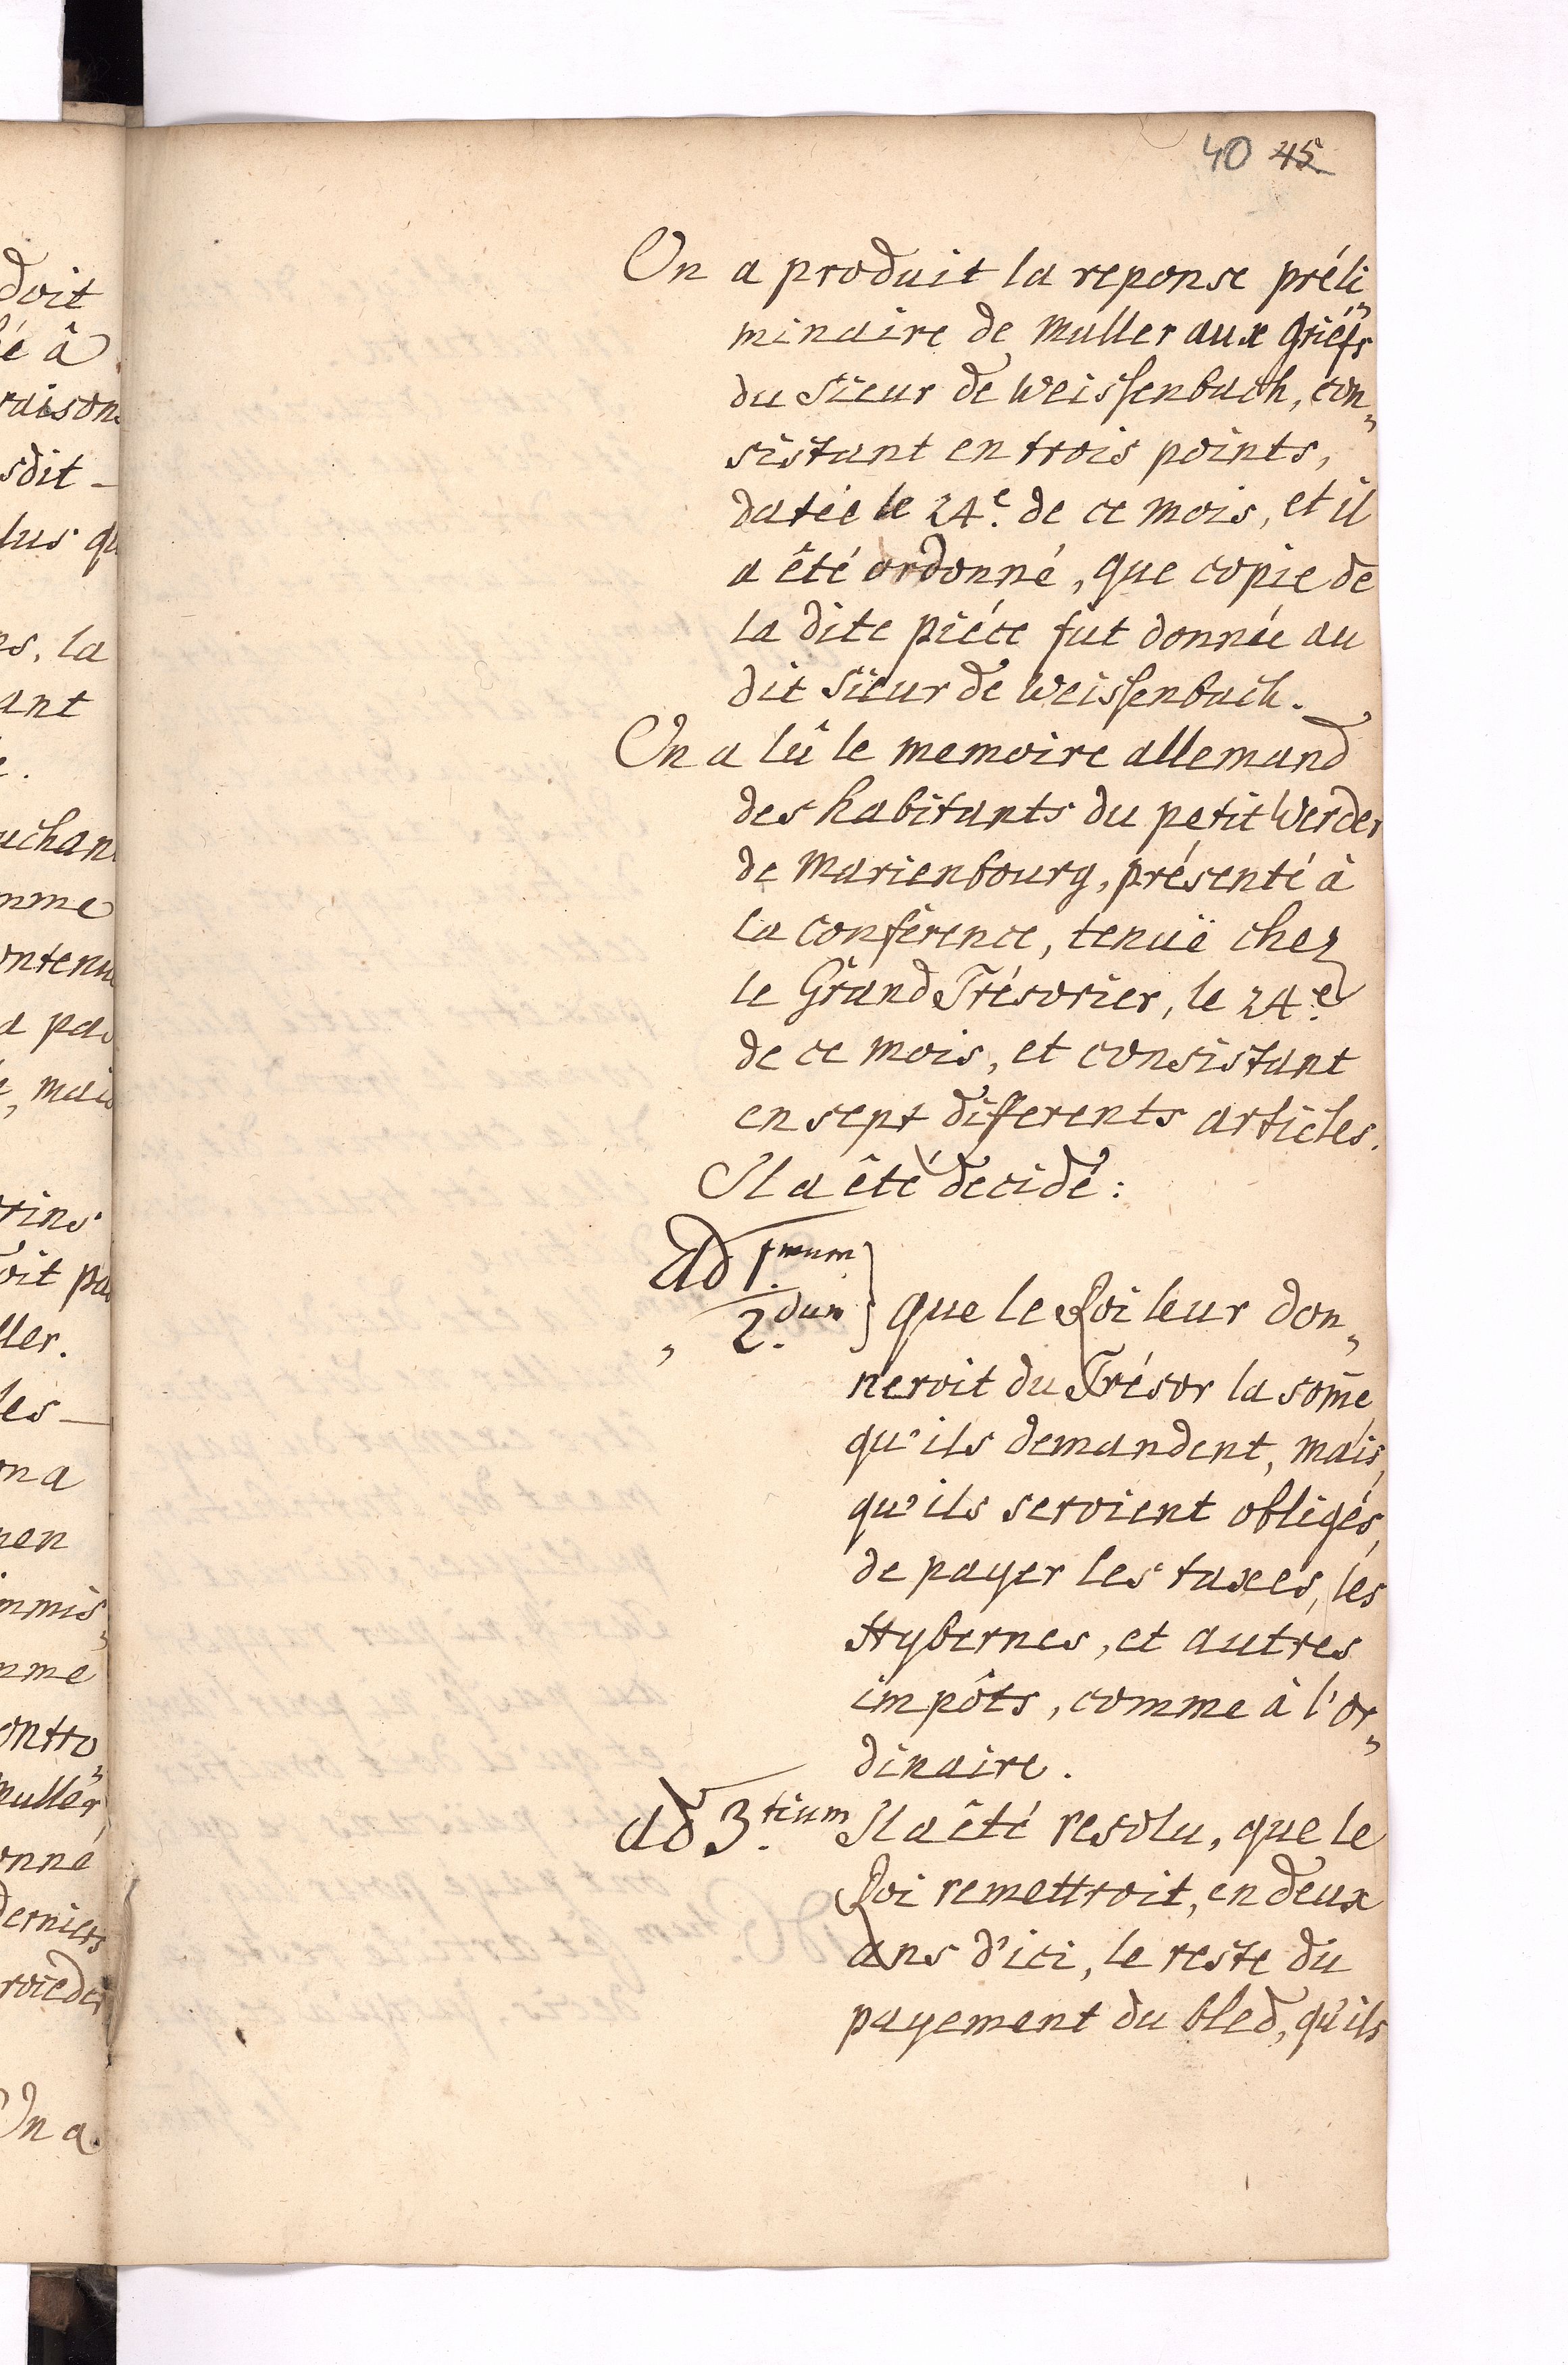 40 45
On a produit la reponse préli„
minaire de Muller aux Griéfs
du Sieur de Weissenbach, con„
sistant en trois points,
datée le 24.e de ce mois, et il
a êté ordonné, que copie de
la dite piéce fut donnée au
dit Sieur de Weissenbach.
On a lû le memoire allemand
des habitants du petit Werder
de Marienbourg, présenté à
la conférence, tenuë chez
le Grand Trésorier, le 24.e
de ce mois, et consistant
en sept differents articles.
Il a êté decidé:
Ad 1.mum
„ 2.dum } que le Roi leur don„
neroit du Trésor la som̄e
qu'ils demandent, mais,
qu'ils seroient obligés,
de payer les taxes, les
Hybernes, et autres
impôts, comme à l'or„
dinaire.
ad 3.tium Il a êté resolu, que le
Roi remettroit, en deux
ans d'ici, le reste du
payement du bled, qu'ils
doit
é â
raison
sdit –
lus qu
ns, la
ant
e.
uchant
mme
ontenu
a pas
, mais
rins
oit pa
ller.
les –
on a
nen
immis„
mme
ontro„
Muller
onné
derniers
On a